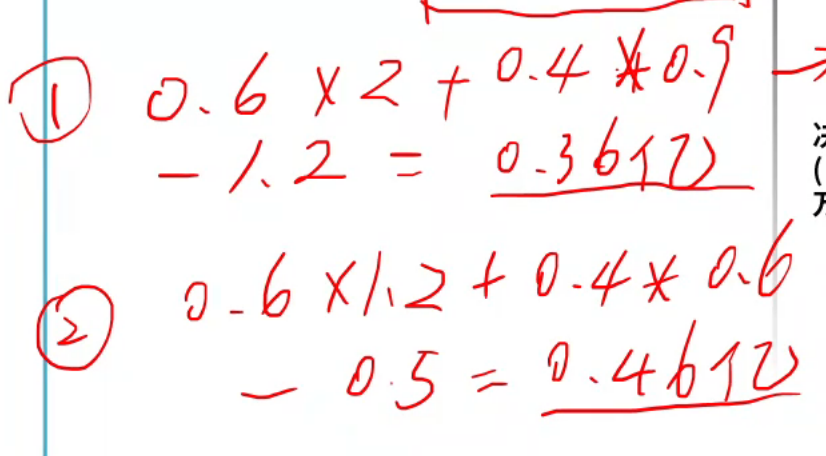 ① 0.6 × 2 + 0.4 * 0.9
- 1.2 = 0.36亿
② 0.6 × 1.2 + 0.4 * 0.6
- 0.5 = 0.46亿